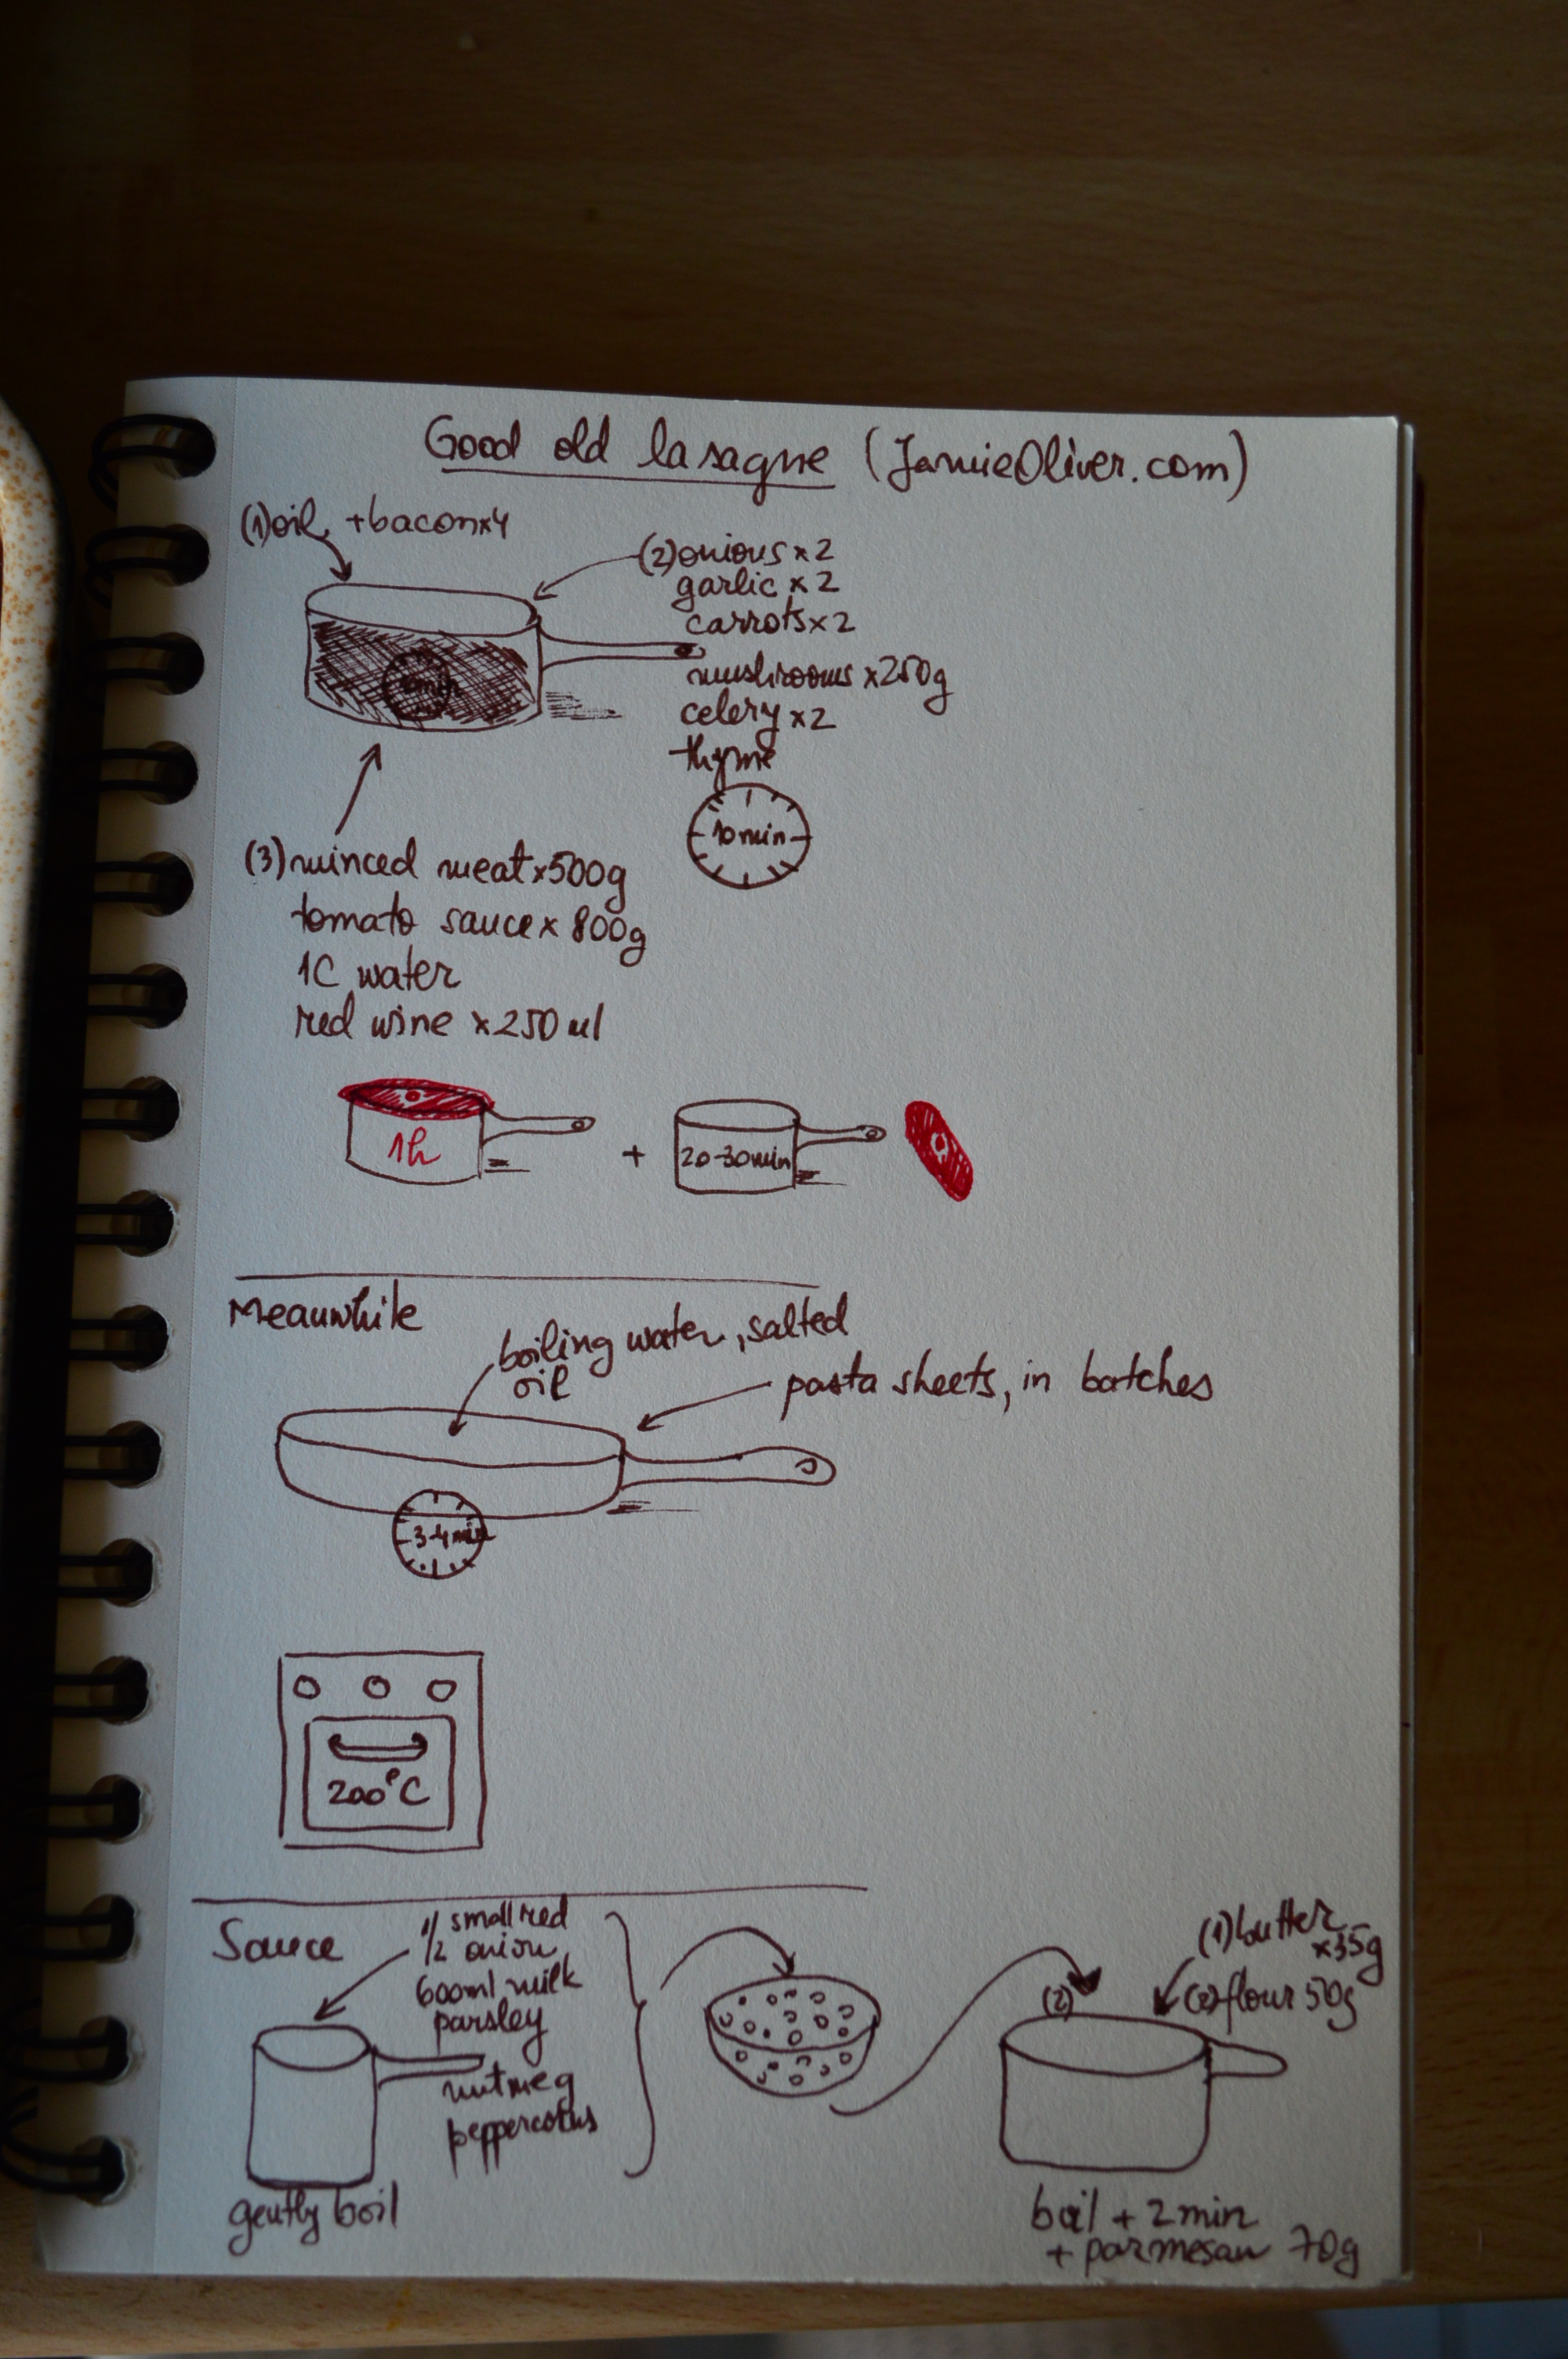 Good old lasagne (JamieOliver.com)
(1)oil +bacon x4
(2)onions x2
garlic x2
carrots x2
mushrooms x250g
celery x2
thyme
10 min
(3)minced meat x500g
tomato sauce x 800g
1C water
red wine x250 ml
1h
+
20-30min
Meanwhile
boiling water, salted
oil
pasta sheets, in batches
3-4 min
200°C
Sauce
small red
1/2 onion
600ml milk
parsley
nutmeg
peppercorns
gently boil
(1)butter
x35g
(2)flour 50g
(2)
boil + 2 min
+ parmesan 70g